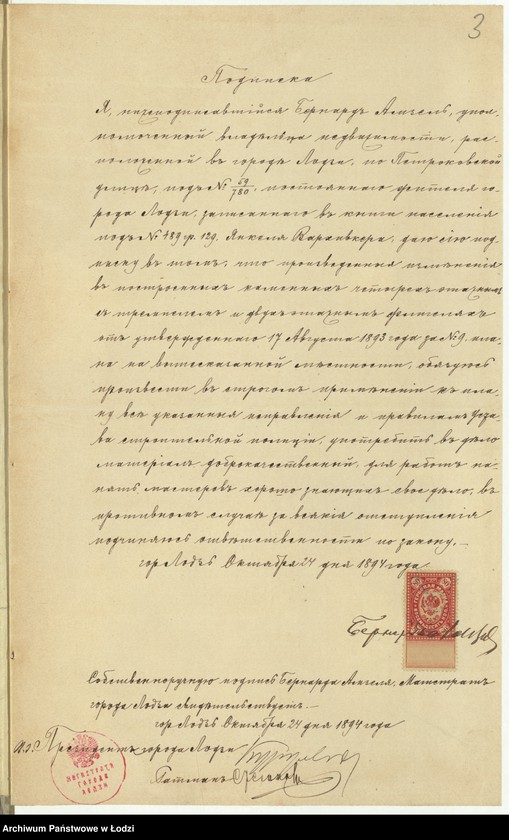 3
Подписка
Я, нижеподписавшійся Бернардъ Ангель, упол-
номоченный владѣльца недвижимости, рас-
положенной въ городѣ Лодзи, по Петроковской
улицѣ, подъ № 69/780, постояннаго жителя го-
рода Лодзи, записаннаго въ книги населенія
подъ № 489 стр. 129, Янкеля даю сію под-
писку въ томъ, что произведенныя измѣненія
въ построенныхъ каменныхъ четырехъ этажныхъ
и двухэтажныхъ флигеляхъ
отъ утвержденнаго 17 Августа 1893 года за № 9. пла-
на на вышесказанной мѣстности, обязуюсь
произвести въ строгомъ примѣненіи къ пла-
ну всѣ указанныя исправленія и правиламъ Уста-
ва строительной полиціи, употребить въ дѣло
матеріалъ доброкачественный, для работъ на-
нять мастеровъ хорошо знающихъ свое дѣло, въ
противномъ случаѣ за всякія отступленія
подчиняюсь отвѣтственности по закону. —
гор. Лодзь Октября 24 дня 1894 года.
80 80
Собственноручную подпись Бернарда Ангеля, Магистратъ
города Лодзи свидѣтельствуетъ. —
гор. Лодзь Октября 24 дня 1894 года
И.д. Президентъ города Лодзи
МАГИСТРАТЪ
ГОРОДА
ЛОДЗИ
Archiwum Państwowe w Łodzi